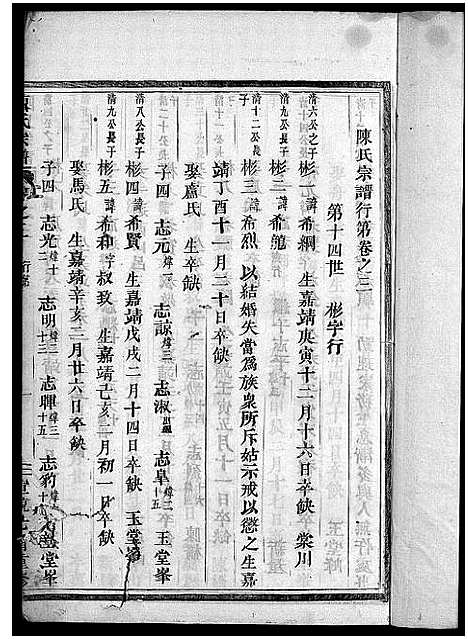 陳氏宗譜行第卷之二
第十四世 彬字行
清六公之子
彬一 諱希綱 生嘉靖庚寅十二月十六日卒缺 棠川
清九公長子
彬二 諱希
清十二公長子
彬三 諱希烈 以結婚失當爲族衆所斥姑示戒以懲之生嘉
靖丁酉十一月二十日卒缺
娶盧氏 生卒缺
子四 志元 志諒 志淑 志臯 玉堂峯
清八公長子
彬四 諱希賢 生嘉靖戊戌二月十四日卒缺 玉堂峯
清九公長子
彬五 諱希和 字叔致 生嘉靖己亥二月初一日卒缺
娶馬氏 生嘉靖辛亥二月廿六日卒缺
子四 志光 志明 志暉 志豹 玉堂峯